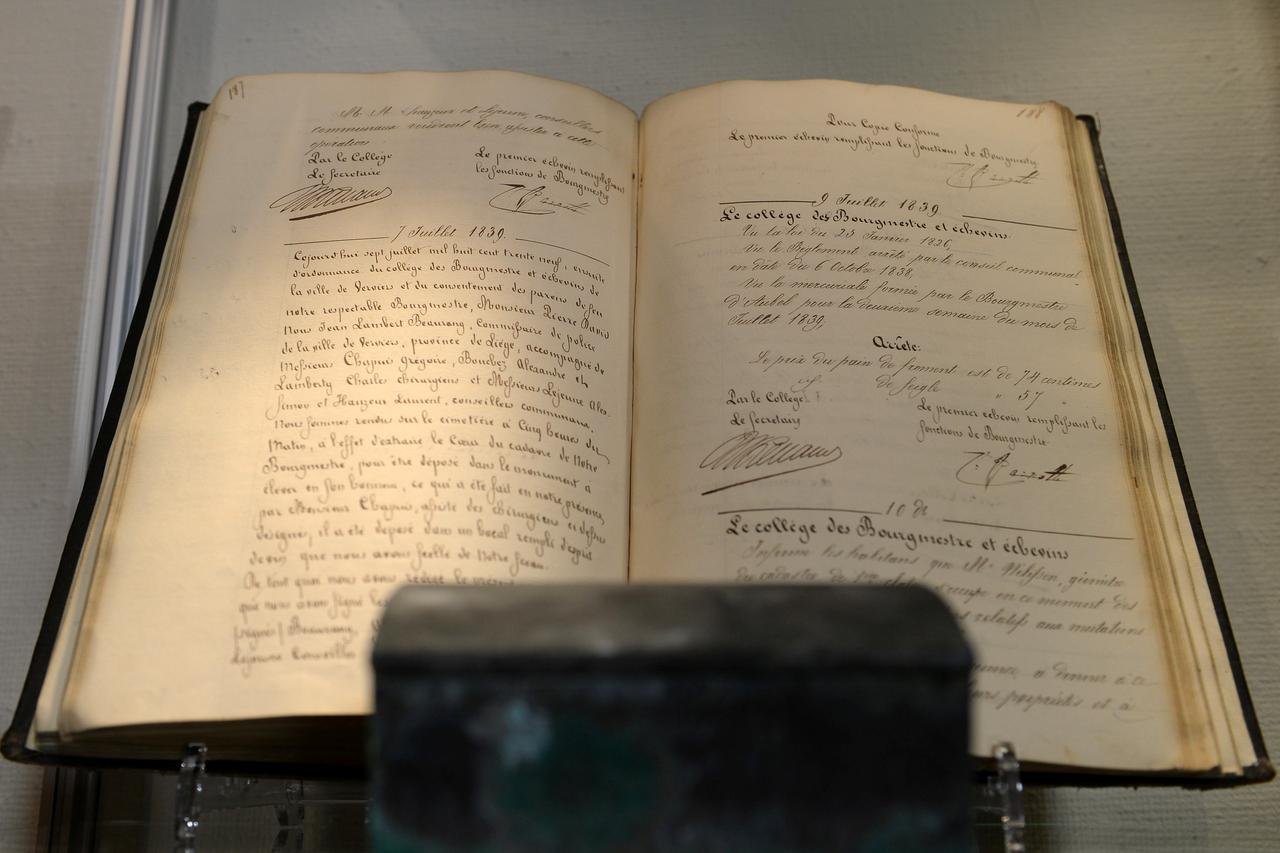 187
M. M. Hauzeur et Lejeune, conseillers
communaux voudront bien assister à cette
opération
Par le Collège
Le Secretaire
Le premier échevin remplissant
les fonctions de Bourgmestre
7 Juillet 1839.
Cejourd'hui sept juillet mil huit cent trente neuf, ensuite
d'ordonnance du collège des Bourgmestre et échevins de
la ville de Verviers et du consentement des parens de feu
notre respectable Bourgmestre, Monsieur Pierre David
Nous Jean Lambert Beaurang, commissaire de police
de la ville de Verviers, province de Liége, accompagné de
Messieurs Chapuis grégoire, Bouchez Alexandre et
Lamberty Charles chirurgiens et Messieurs Lejeune Alex-
Simon et Hauzeur Laurent, conseillers communaux.
Nous sommes rendus sur le cimetière à Cinq heures du
Matin, à l'effet d'extraire le Cœur du cadavre de Notre
Bourgmestre, pour être déposé dans le monument à
élever en son honneur, ce qui a été fait en notre présence
par Monsieur Chapuis, assisté des chirurgiens ci dessus
designés, il a été déposé dans un bocal rempli d'esprit
de vin que nous avons scellé de Notre sceau.
De tout quoi nous avons rédigé le présent
que nous avons signé les
(signés) Beaurang,
Lejeune Conseiller
188
Pour Copie Conforme
Le premier échevin remplissant les fonctions de Bourgmestre
9 Juillet 1839
Le collège des Bourgmestre et échevins
Vu la loi du 25 Janvier 1826,
Vu le Réglement arrêté par le conseil communal
en date du 6 Octobre 1838,
Vu la mercuriale formée par le Bourgmestre
d'Aubel pour la deuxième semaine du mois de
Juillet 1839,
Arrête:
Le prix du pain de froment est de 74 centimes
de seigle " 57 "
Par le Collège
Le Secretaire
Le premier échevin remplissant les
fonctions de Bourgmestre
10 do
Le collège des Bourgmestre et échevins
Informe les habitans que Mr géomètre
du cadastre de 1ere classe s'occupe en ce moment des
relatifs aux mutations
à donner à ce
leurs propriétés et à